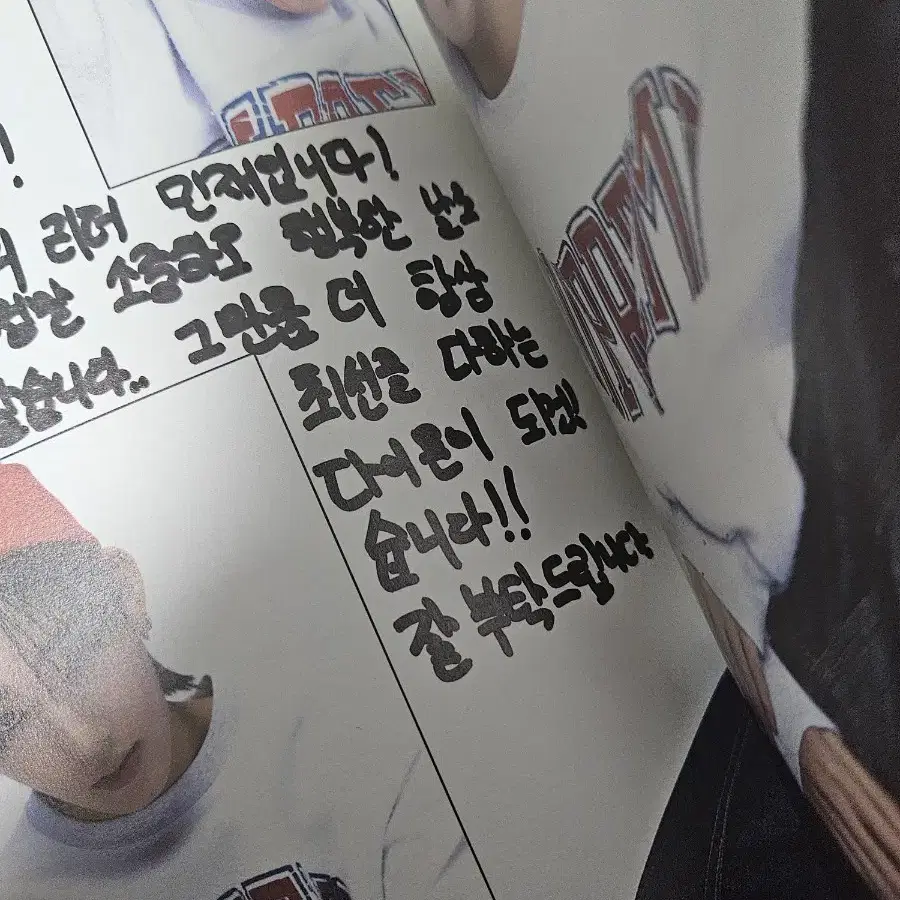 !
의 리더 민재입니다!
정말 소중하고 행복한 날
같습니다.. 그만큼 더 항상
최선을 다하는
다이몬이 되겠
습니다!!
잘 부탁드립니다